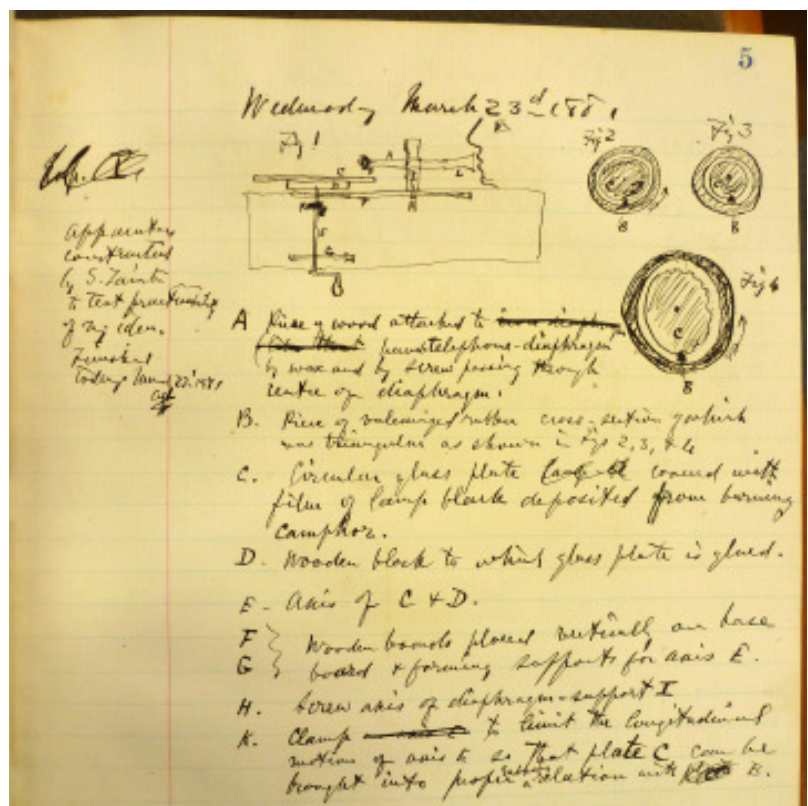 5
Wednesday March 23rd 1881
Fig 1
Fig 2
Fig 3
Fig 4
Apparatus
constructed
by S. Tainter
to test practicability
of my idea.
Finished
today
A Piece of wood attached to
parastelephone-diaphragm
by wax and by screw passing through
centre of diaphragm.
B. Piece of vulcanized rubber cross-section of which
was triangular as shown in Figs 2, 3, & 4
C. Circular glass plate covered with
film of lamp black deposited from burning
camphor.
D. Wooden block to which glass plate is glued.
E - Axis of C & D.
F } Wooden boards placed vertically on base
G } board & forming supports for axis E.
H. Screw axis of diaphragm-support I
K. Clamp to limit the longitudinal
motion of axis so that plate C can be
brought into proper relation with B.